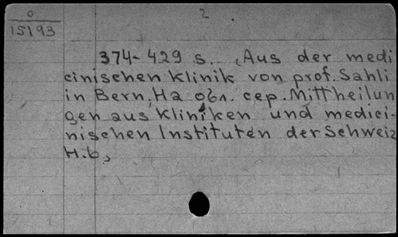 0
2
15193
374-429 s. „Aus der medi
cinischen Klinik von prof. Sahli
in Bern, На обл. сер. Mittheilun
gen aus Kliniken und medici-
nischen Instituten der Schweiz
H.6,